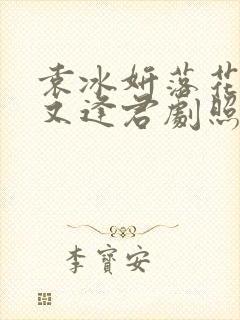 袁冰妍落花
又逢君劇照
李寶安